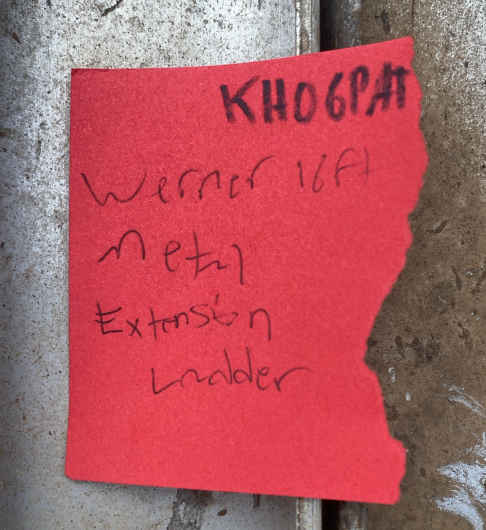 KH06PAT
Werner 16ft
Metal
Extension
Ladder